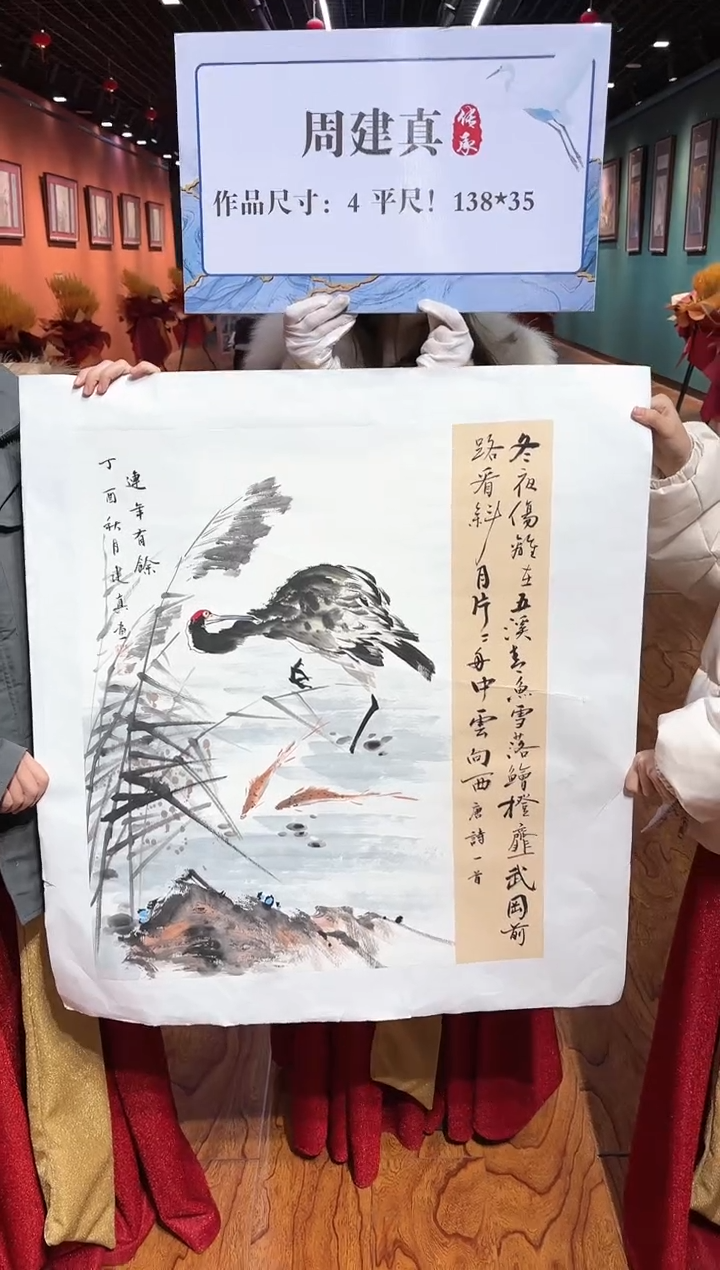 周建真
传承
作品尺寸：4 平尺！138*35
冬夜傷離在五溪青魚雪落鱠橙齏武岡前
路看斜月片〻舟中雲向西唐詩一首
連年有餘
丁酉秋月建真畫